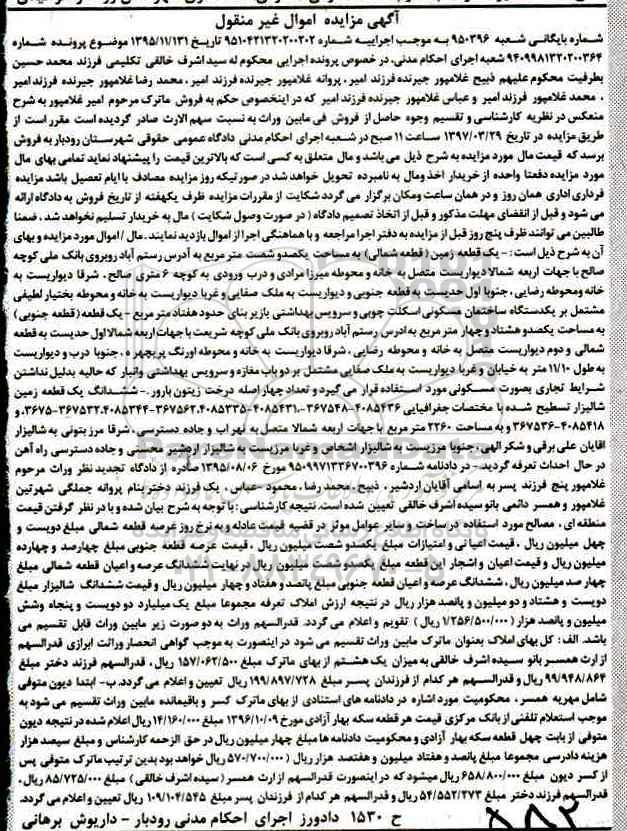 آگهی مزایده اموال غیر منقول
شماره بایگانی شعبه ۹۵۰۳۹۶ به موجب اجراییه شماره ۹۵۱۰۴۲۱۳۲۰۲۰۰۲۰۲ تاریخ ۱۳۹۵/۱۱/۱۳۱ موضوع پرونده شماره
۹۴۰۹۹۸۱۳۲۰۲۰۰۳۶۴ شعبه اجرای احکام مدنی، در خصوص پرونده اجرایی محکوم له سید اشرف خالقی تکلیمی فرزند محمد حسین
بطرفیت محکوم علیهم ذبیح غلامپور جیرنده فرزند امیر، پروانه غلامپور جیرنده فرزند امیر، محمد رضا غلامپور جیرنده فرزند امیر
، محمد غلامپور فرزند امیر و عباس غلامپور جیرنده فرزند امیر که در اینخصوص حکم به فروش ماترک مرحوم امیر غلامپور به شرح
منعکس در نظریه کارشناسی و تقسیم وجوه حاصل از فروش فی مابین وراث به نسبت سهم الارث صادر گردیده است مقرر است از
طریق مزایده در تاریخ ۱۳۹۷/۰۳/۲۹ ساعت ۱۱ صبح در شعبه اجرای احکام مدنی دادگاه عمومی حقوقی شهرستان رودبار به فروش
برسد که قیمت مال مورد مزایده به شرح ذیل می باشد و مال متعلق به کسی است که بالاترین قیمت را پیشنهاد نماید تمامی بهای مال
مورد مزایده دفعتا واحده از خریدار اخذ ومال به نامبرده تحویل خواهد شد در صورتیکه روز مزایده مصادف با ایام تعصیل باشد مزایده
فرداری اداری همان روز و در همان ساعت ومکان برگزار می گردد شکایت از مقررات مزایده ظرف یکهفته از تاریخ فروش به دادگاه ارائه
می شود و قبل از انقضای مهلت مذکور و قبل از اتخاذ تصمیم دادگاه ( در صورت وصول شکایت ) مال به خریدار تسلیم نخواهد شد . ضمنا
طالبین می توانند ظرف پنج روز قبل از مزایده به دفتر اجرا مراجعه و با هماهنگی اجرا از اموال بازدید نمایند . مال / اموال مورد مزایده و بهای
آن به شرح ذیل است : - یک قطعه زمین (قطعه شمالی) به مساحت یکصدو شصت متر مربع به آدرس رستم آباد روبروی بانک ملی کوچه
صالح با جهات اربعه شمالا دیواریست متصل به خانه و محوطه میرزا مرادی و درب ورودی به کوچه ۶ متری صالح . شرقا دیواریست به
خانه ومحوطه رضایی، جنوبا اول حدیست به قطعه جنوبی و دیواریست به ملک صفایی و غربا دیواریست به خانه و محوطه بختیار لطیفی
مشتمل بر یکدستگاه ساختمان مسکونی اسکلت چوبی و سرویس بهداشتی بازیر بنای حدود هفتاد متر مربع - یک قطعه (قطعه جنوبی)
به مساحت یکصدو هشتاد و چهار متر مربع به ادرس رستم آباد روبروی بانک ملی کوچه شریعت با جهات اربعه شمالا اول حدیست به قطعه
شمالی و دوم دیواریست متصل به خانه و محوطه رضایی، شرقا دیواریست به خانه و محوطه اورنگ پریچهره ، جنوبا درب و دیواریست
به طول ۱۱/۱۰ متر به خیابان و غربا دیواریست به ملک صفایی مشتمل بر دو باب مغازه و سرویس بهداشتی وانبار که حالیه بدلیل نداشتن
شرایط تجاری بصورت مسکونی مورد استفاده قرار می گیرد و تعداد چهار اصله درخت زیتون بارور .- ششدانگ یک قطعه زمین
شالیزار تسطیح شده با مختصات جغرافیایی ۴۰۸۵۴۳۶-۳۶۷۵۴۸ ،۴۰۸۵۴۳۱-۳۶۷۵۶۲،۴۰۸۵۳۳۵-۳۶۷۵۳۲،۴۰۸۵۳۴۴-۳۶۷۵ و
۴۰۸۵۴۱۸-۳۶۷۵۳۶ و به مساحت ۲۲۶۰ متر مربع با جهات اربعه شمالا متصل به نهراب و جاده دسترسی، شرقا مرز بتونی به شالیزار
اقایان علی برقی و شکر الهی، جنوبا مرزیست به شالیزار اشخاص و غربا مرزیست به شالیزار اردشیر محسنی و جاده دسترسی راه آهن
در حال احداث تعرفه گردید.- در دادنامه شماره ۹۵۰۹۹۷۱۳۳۶۷۰۰۳۹۶ مورخ ۱۳۹۵/۰۸/۰۶ صادره از دادگاه تجدید نظر وراث مرحوم
غلامپور پنج فرزند پسر به اسامی آقایان اردشیر، ذبیح، محمد رضا، محمود -عباس ، یک فرزند دختر بنام پروانه جملگی شهرتین
غلامپور و همسر دائمی بانو سیده اشرف خالقی تعیین شده است. نتیجه کارشناسی : با توجه به شرح بیان شده و با در نظر گرفتن قیمت
منطقه ای ، مصالح مورد استفاده در ساخت و سایر عوامل موثر در قضیه قیمت عادله و به نرخ روز عرصه قطعه شمالی مبلغ دویست و
چهل میلیون ریال ، قیمت اعیانی و امتیازات مبلغ یکصدو شصت میلیون ریال ، قیمت عرصه قطعه جنوبی مبلغ چهارصد و چهارده
میلیون ریال و قیمت اعیان و اشجار این قطعه مبلغ یکصدو شصت میلیون ریال در نهایت ششدانگ عرصه و اعیان قطعه شمالی مبلغ
چهار صد میلیون ریال ، ششدانگ عرصه و اعیان قطعه جنوبی مبلغ پانصد و هفتاد و چهار میلیون ریال و قیمت ششدانگ شالیزار مبلغ
دویست و هشتاد و دو میلیون و پانصد هزار ریال در نتیجه ارزش املاک تعرفه مجموعا مبلغ یک میلیارد دو دویست و پنجاه وشش
میلیون و پانصد هزار (۱/۲۵۶/۵۰۰/۰۰۰ ریال ) تقویم و اعلام می گردد. قدرالسهم وراث به دو صورت زیر مابین وراث قابل تقسیم می
باشد. الف : کل بهای املاک بعنوان ماترک مابین وراث تقسیم می شود در اینصورت به موجب گواهی انحصار وراثت ابرازی قدرالسهم
از ارث همسر بانو سیده اشرف خالقی به میزان یک هشتم از بهای ماترک مبلغ ۱۵۷/۰۶۲/۵۰۰ ریال ، قدرالسهم فرزند دختر مبلغ
۹۹/۹۴۸/۸۶۴ ریال و قدرالسهم هر کدام از فرزندان پسر مبلغ ۱۹۹/۸۹۷/۷۲۸ ریال تعیین و اعلام می گردد. ب- ابتدا دیون متوفی
شامل مهریه همسر ، محکومیت مورد اشاره در دادنامه های استنادی از بهای ماترک کسر و باقیمانده مابین وراث تقسیم می شود به
موجب استعلام تلفنی از بانک مرکزی قیمت هر قطعه سکه بهار آزادی مورخ ۱۳۹۶/۱۰/۰۹ مبلغ ۱۴/۱۶۰/۰۰۰ ریال اعلام شده در نتیجه دیون
متوفی از بابت چهل قطعه سکه بهار آزادی و محکومیت دادنامه ها مبلغ چهار میلیون ریال در حق الزحمه کارشناس و مبلغ سیصد هزار
هزینه دادرسی مجموعا مبلغ پانصد و هفتاد میلیون و هفتصد هزار ریال (۵۷۰/۷۰۰/۰۰۰ ریال خواهد بود بدین ترتیب ماترک متوفی پس
از کسر دیون مبلغ ۶۵۸/۸۰۰/۰۰۰ ریال میشود که در اینصورت قدرالسهم از ارث همسر (سیده اشرف خالقی) مبلغ ۸۵/۷۲۵/۰۰۰ ریال ،
قدرالسهم فرزند دختر مبلغ ۵۴/۵۵۲/۲۷۳ ریال و قدرالسهم هر کدام از فرزندان پسر مبلغ ۱۰۹/۱۰۴/۵۴۵ ریال تعیین و اعلام می گردد.
ح ۱۵۳۰ دادورز اجرای احکام مدنی رودبار - داریوش برهانی